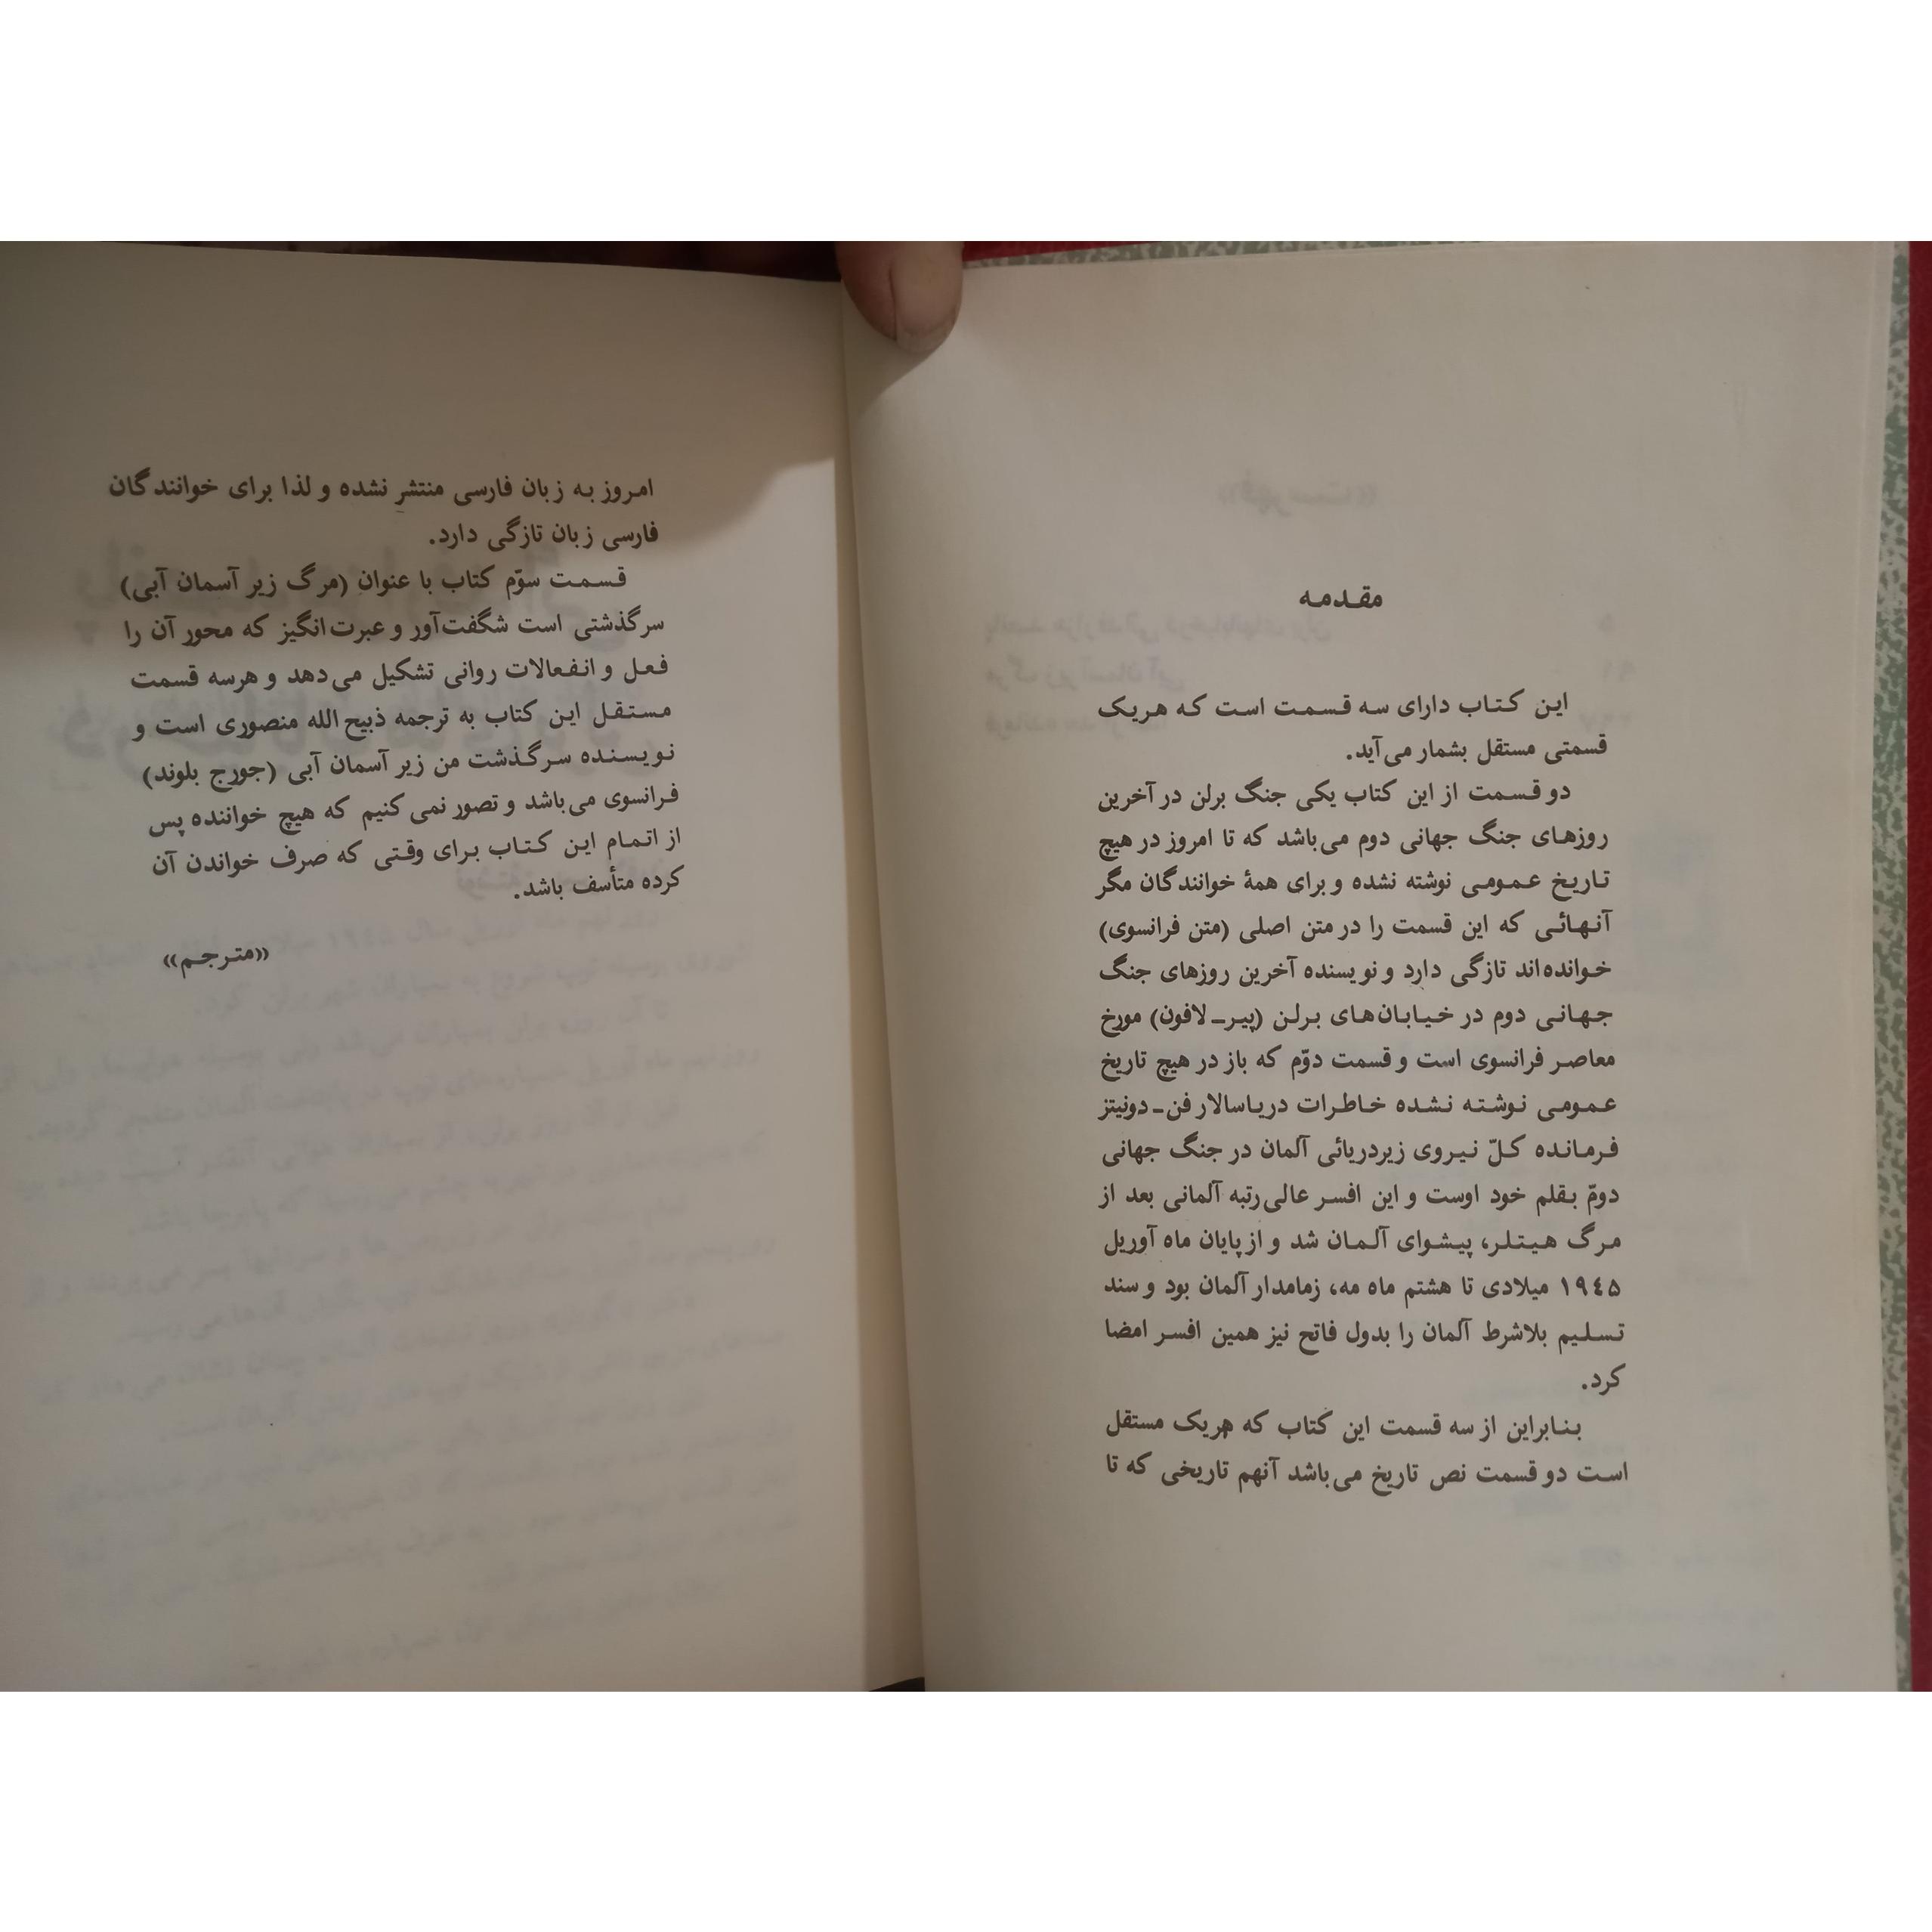 مقدمه
این کتاب دارای سه قسمت است که هریک
قسمتی مستقل بشمار می‌آید.
دو قسمت از این کتاب یکی جنگ برلن در آخرین
روزهای جنگ جهانی دوم می‌باشد که تا امروز در هیچ
تاریخ عمومی نوشته نشده و برای همهٔ خوانندگان مگر
آنهائی که این قسمت را در متن اصلی (متن فرانسوی)
خوانده‌اند تازگی دارد و نویسنده آخرین روزهای جنگ
جهانی دوم در خیابان‌های برلن (پیر_لافون) مورخ
معاصر فرانسوی است و قسمت دوّم که باز در هیچ تاریخ
عمومی نوشته نشده خاطرات دریاسالار فن_دونیتز
فرمانده کلّ نیروی زیردریائی آلمان در جنگ جهانی
دومّ بقلم خود اوست و این افسر عالی‌رتبه آلمانی بعد از
مرگ هیتلر، پیشوای آلمان شد و از پایان ماه آوریل
۱۹٤۵ میلادی تا هشتم ماه مه، زمامدار آلمان بود و سند
تسلیم بلاشرط آلمان را بدول فاتح نیز همین افسر امضا
کرد.
بنابراین از سه قسمت این کتاب که هریک مستقل
است دو قسمت نص تاریخ می‌باشد آنهم تاریخی که تا
امروز به زبان فارسی منتشر نشده و لذا برای خوانندگان
فارسی زبان تازگی دارد.
قسمت سوّم کتاب با عنوان (مرگ زیر آسمان آبی)
سرگذشتی است شگفت‌آور و عبرت‌انگیز که محور آن را
فعل و انفعالات روانی تشکیل می‌دهد و هرسه قسمت
مستقل این کتاب به ترجمه ذبیح الله منصوری است و
نویسنده سرگذشت من زیر آسمان آبی (جورج بلوند)
فرانسوی می‌باشد و تصور نمی کنیم که هیچ خواننده پس
از اتمام این کتاب برای وقتی که صرف خواندن آن
کرده متأسف باشد.
«مترجم»